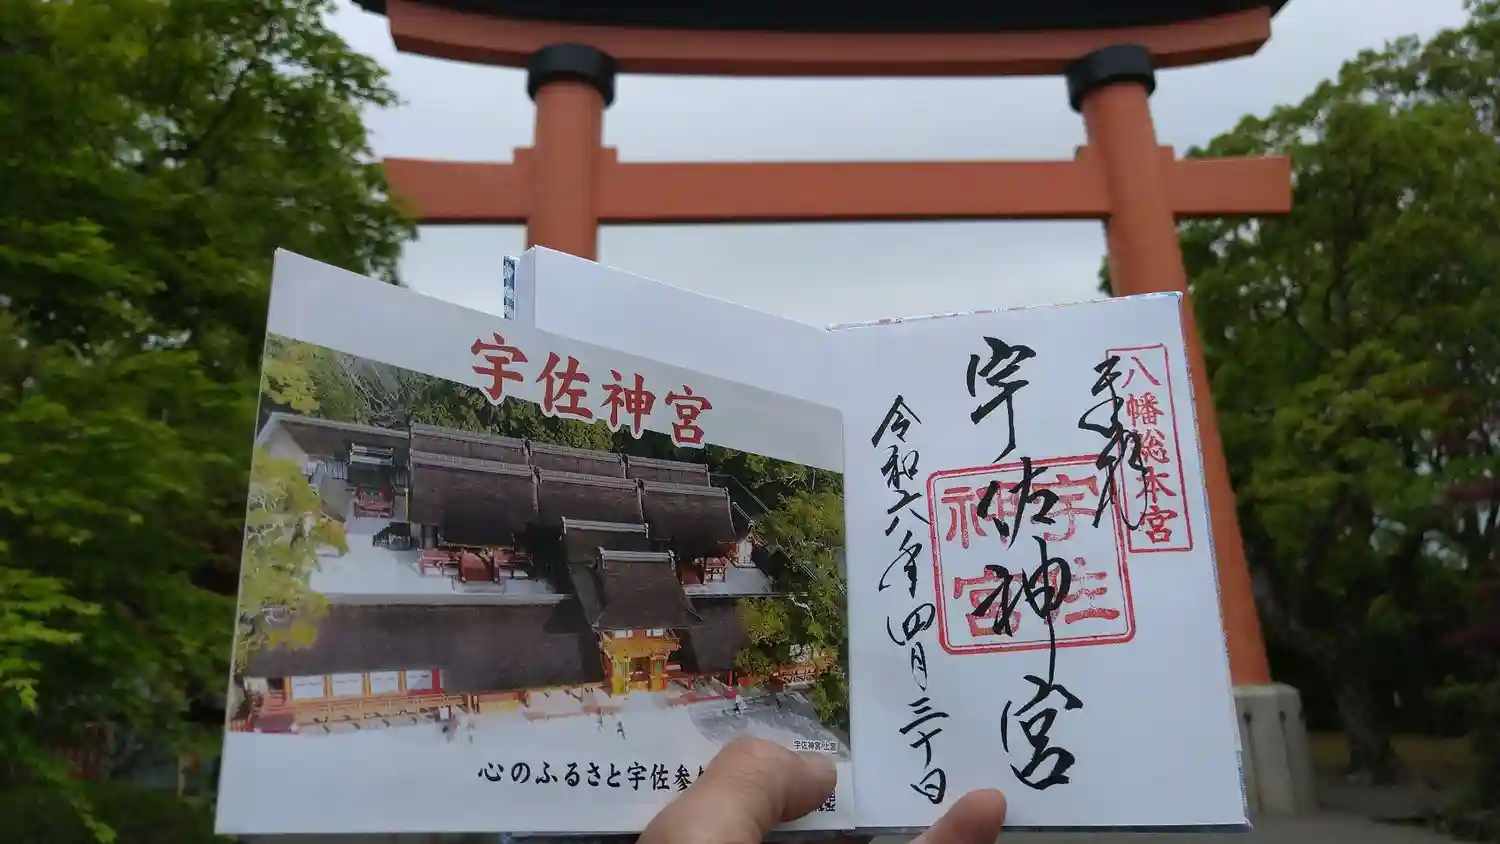 宇佐神宮
宇佐神宮 上宮
心のふるさと宇佐参
八幡総本宮
奉拝
宇佐神宮
宇佐
神宮
令和六年四月三十日